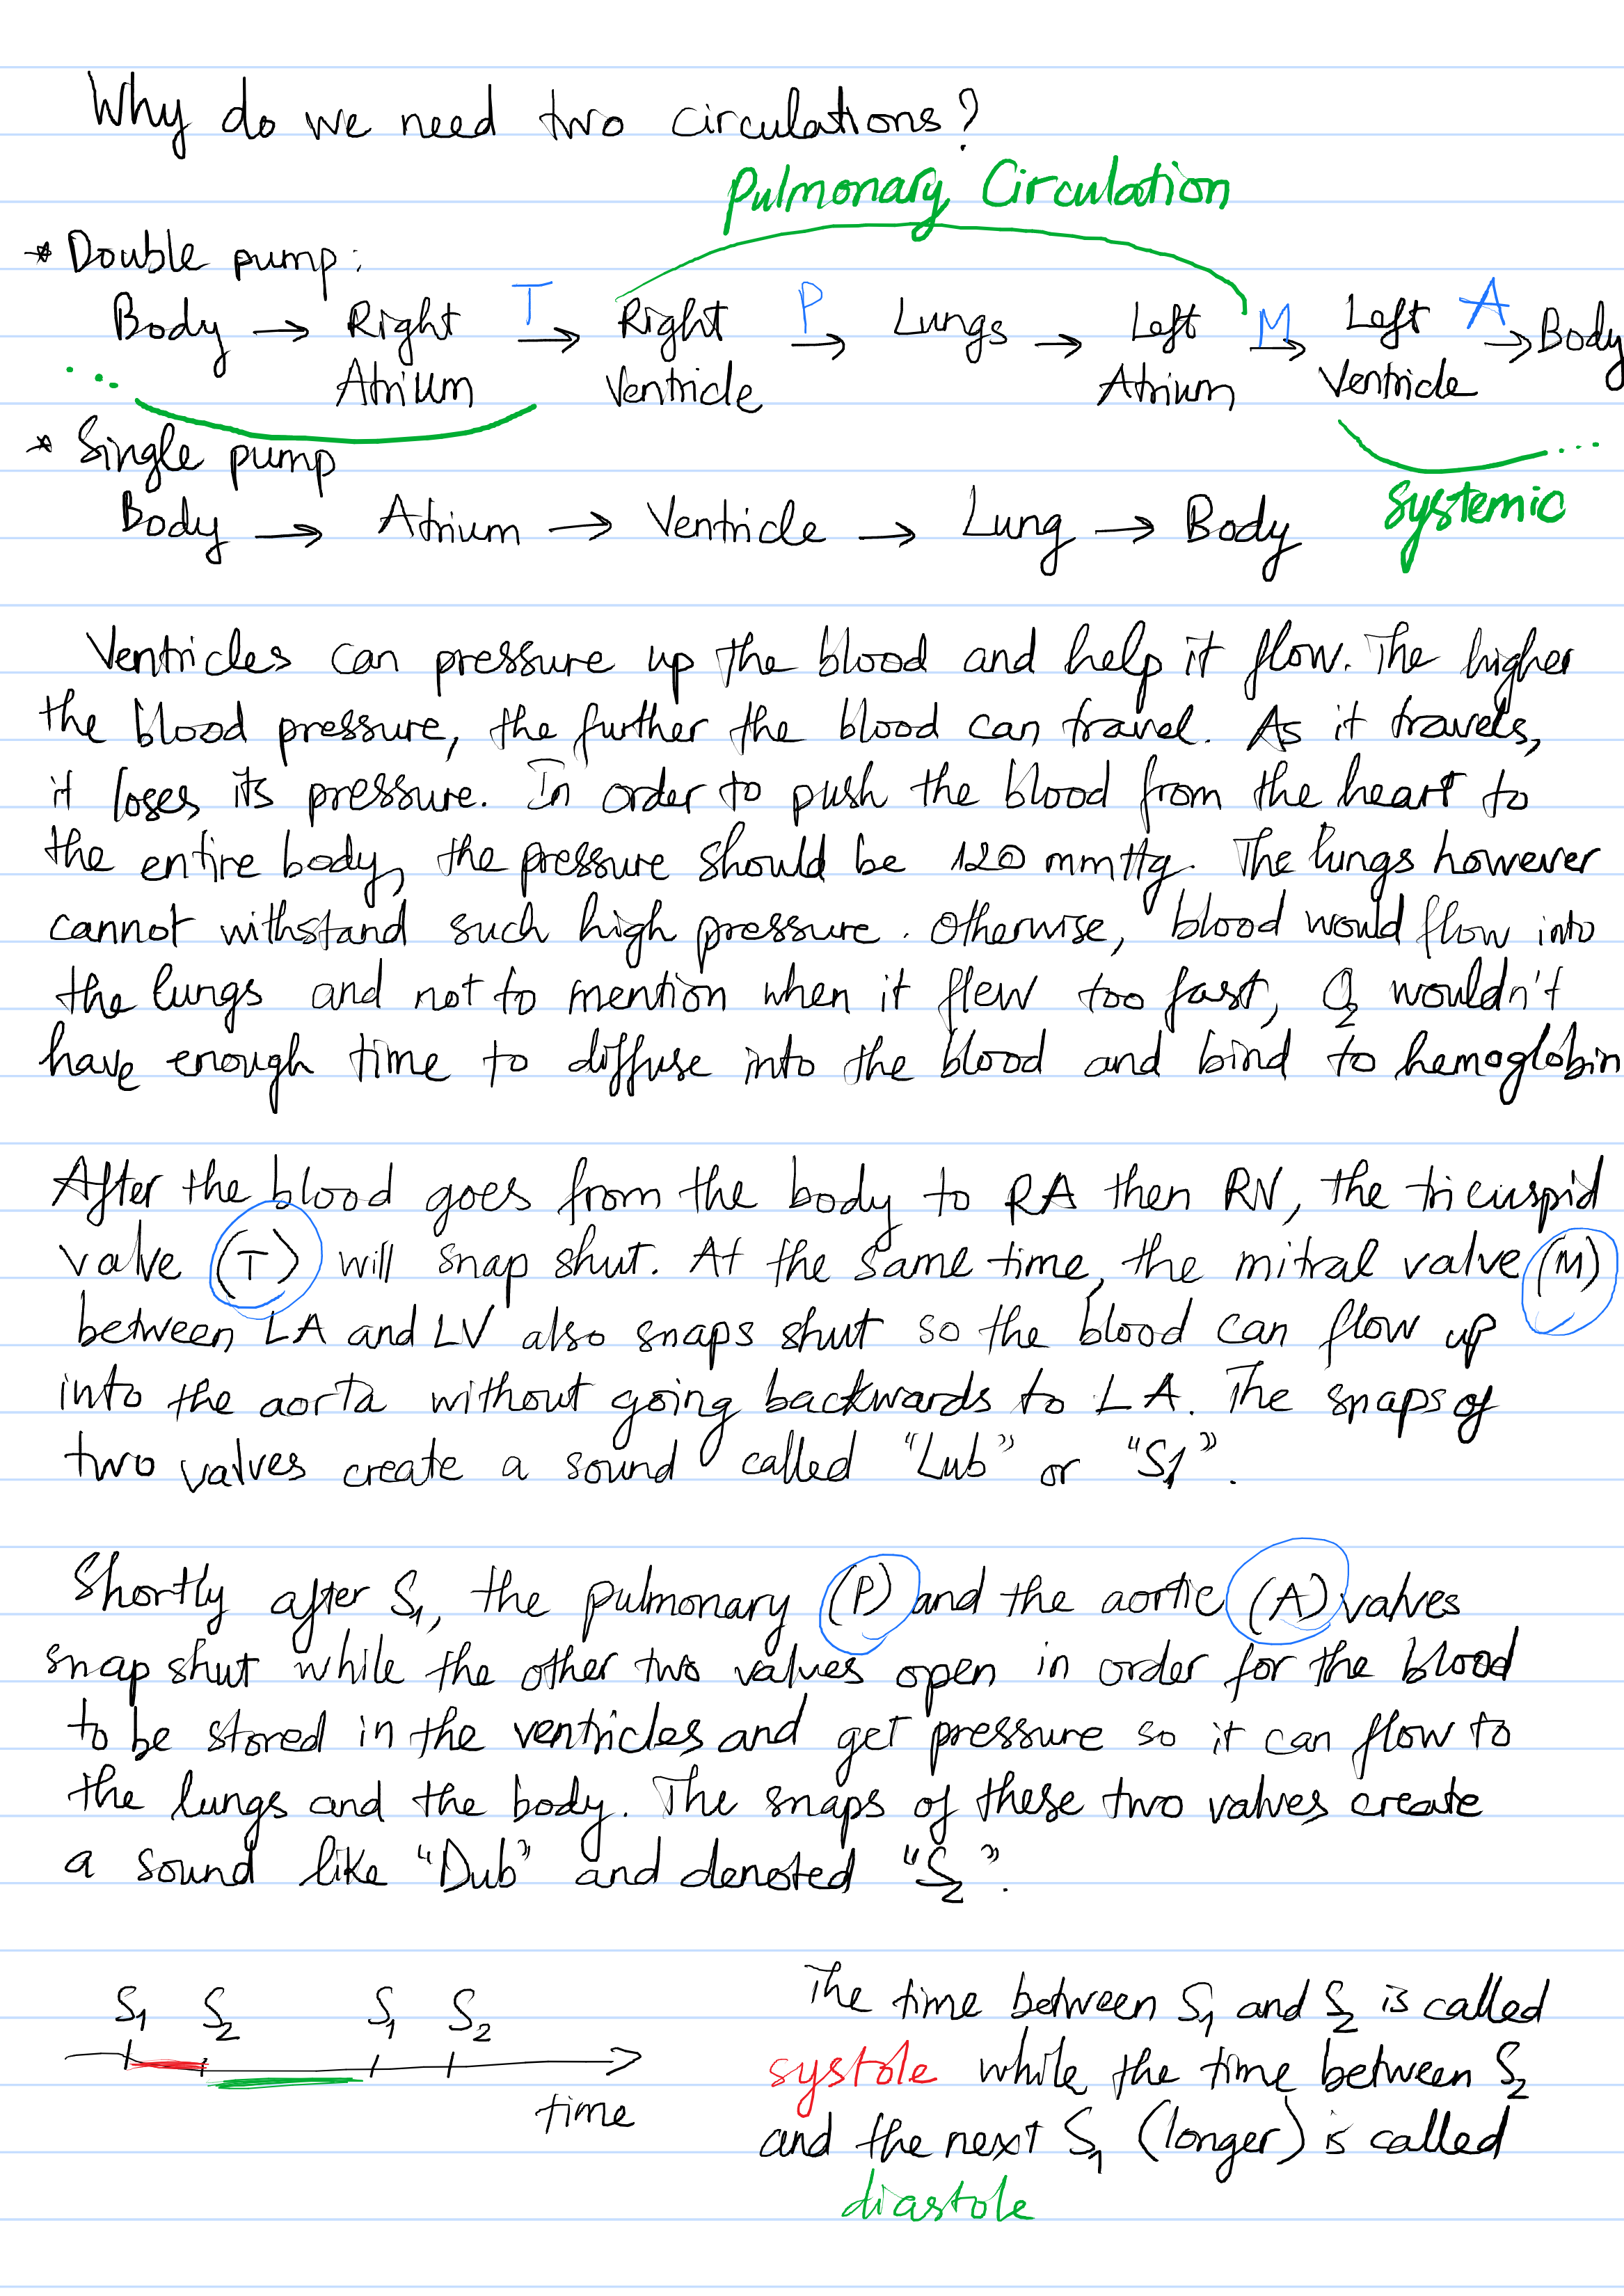 Why do we need two circulations?
Pulmonary Circulation
* Double pump:
Body → Right Atrium T→ Right Ventricle P→ Lungs → Left Atrium M→ Left Ventricle A→ Body
* Single pump
Body → Atrium → Ventricle → Lung → Body
Systemic
Ventricles can pressure up the blood and help it flow. The higher
the blood pressure, the further the blood can travel. As it travels,
it loses its pressure. In order to push the blood from the heart to
the entire body, the pressure should be 120 mmHg. The lungs however
cannot withstand such high pressure. Otherwise, blood would flow into
the lungs and not to mention when it flew too fast, O₂ wouldn't
have enough time to diffuse into the blood and bind to hemoglobin
After the blood goes from the body to RA then RV, the tricuspid
valve (T) will snap shut. At the same time, the mitral valve (M)
between LA and LV also snaps shut so the blood can flow up
into the aorta without going backwards to LA. The snaps of
two valves create a sound called "Lub" or "S1".
Shortly after S₁, the pulmonary (P) and the aortic (A) valves
snap shut while the other two valves open in order for the blood
to be stored in the ventricles and get pressure so it can flow to
the lungs and the body. The snaps of these two valves create
a sound like "Dub" and denoted "S₂".
S₁ S₂ S₁ S₂
time
The time between S₁ and S₂ is called
systole while the time between S₂
and the next S₁ (longer) is called
diastole